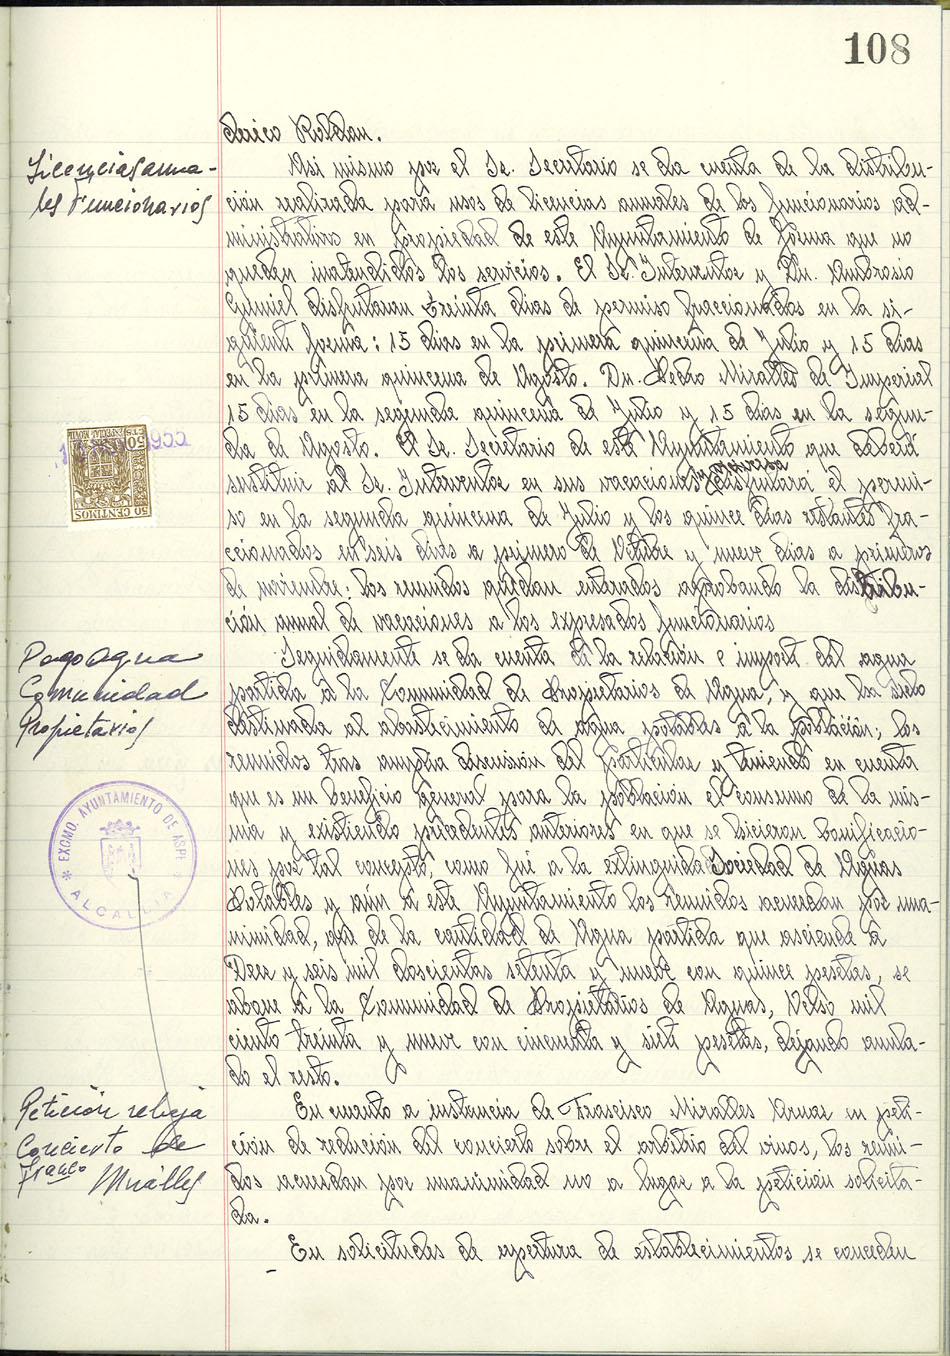 108
derico Roldan.
Licencias anua-
les Funcionarios
Asi mismo por el Sr. Secretario se da cuenta de la distribu-
ción realizada para usos de licencias anuales de los funcionarios ad-
ministrativos en propiedad de este Ayuntamiento de forma que no
queden inatendidos los servicios. El Sr. Interventor y Dn. Ambrosio
Gumiel disfrutaran treinta dias de permiso fraccionados en la si-
guiente forma: 15 dias en la primera quincena de Julio y 15 dias
en la primera quincena de Agosto. Dn. Pedro Miralles de Imperial
15 dias en la segunda quincena de Julio y 15 dias en la segun-
da de Agosto. El Sr. Secretario de este Ayuntamiento que deberá
sustituir al Sr. Interventor en sus vacaciones y viceversa disfrutará el permi-
so en la segunda quincena de Julio y los quince dias restantes fra-
ccionados en seis dias a primero de Octubre y nueve dias a primeros
de noviembre: los reunidos quedan enterados aprobando la distribu-
ción anual de vacaciones a los expresados funcionarios
50 CENTIMOS
50
ESPECIAL MOVIL
Pago agua
Comunidad
Propietarios
Seguidamente se da cuenta de la relación e importe del agua
partida a la Comunidad de Propietarios de Agua, y que ha sido
destinada al abastecimiento de agua potables a la población; los
reunidos tras amplia discusion del particular y teniendo en cuenta
que es un beneficio general para la población el consumo de la mis-
ma y existiendo precedentes anteriores en que se hicieron bonificacio-
nes por tal concepto, como fué a la extinguida Sociedad de Aguas
Potables y aún a este Ayuntamiento los reunidos acuerdan por una-
nimidad, que de la cantidad de Agua partida que asciende a
Diez y seis mil doscientas setenta y nueve con quince pesetas, se
abone a la Comunidad de Propietarios de Aguas, Ocho mil
ciento treinta y nueve con cincuenta y siete pesetas, dejando anula-
do el resto.
EXCMO. AYUNTAMIENTO DE ASPE
* ALCALDIA *
Petición rebaja
Concierto de
Franco Miralles
En cuanto a instancia de Francisco Miralles Arnas en peti-
ción de reducion del concierto sobre el arbitrio del vinos, los reuni-
dos acuerdan por unanimidad no a lugar a la petición solicita-
da.
En solicitudes de apertura de establecimientos se conceden